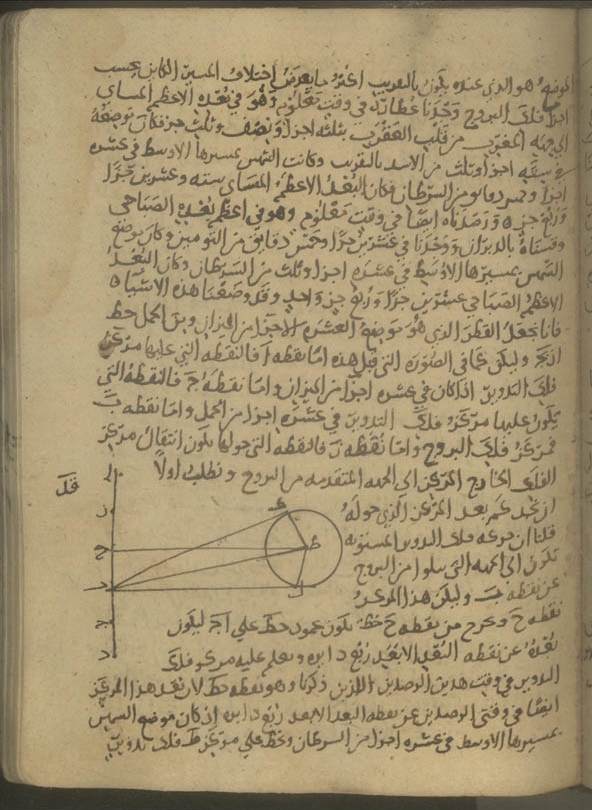 الموضع هو الذي عنده يكون بالتقريب اعني ما يعرض اختلاف المسير الكاين بحسب
اجزا فلك البروج وجدنا عطارد في وقت معلوم وهو في بعده الاعظم المساي
الي جهة المغرب من قلب العقرب بثلثه اجزا ونصف وثلث جز فكان موضعه
في ستة اجزا وثلث من الاسد بالتقريب وكانت الشمس بمسيرها الاوسط في عشره
اجزا وخمس دقايق من السرطان فكان البعد الاعظم المساي سته وعشرين جزا
وربع جز ورصدناه ايضا في وقت معلوم وهو في اعظم بعده الصباحي
وقسناه بالدبران ووجدنا في عشرين جزا وخمس دقايق من التومين وكان موضع
الشمس بمسيرها الاوسط في عشره اجزا وثلث من السرطان وكان البعد
الاعظم الصباحي عشرين جزا وربع جز واحد وقد وضعنا هذه الاشيا
فانا نجعل القطر الذي هو موضع العشره الاجزا من الميزان ومن الحمل خط
ا ز ح ج وليكن كما في الصوره التي قبل هذه اما نقطه ا فالنقطه التي عليها مركز
فلك التدوير اذا كان في عشره اجزا من الميزان واما نقطه ج فالنقطه التي
يكون عليها مركز فلك التدوير في عشره اجزا من الحمل واما نقطه ب
فمركز فلك البروج واما نقطه ز فالنقطه التي حولها يكون انتقال مركز
الفلك الخارج المركز الي الجهه المتقدمه من البروج ونطلب اولا
ان نجد كم بعد المركز الذي حوله
قلنا ان حركه فلك التدوير المستويه
تكون الي الجهه التي يتلوا من البروج
عن نقطه ب وليكن هذا المركز
نقطه ح ونخرج من نقطه ح خط يكون عمود حط علي اج ليكون
بعده عن نقطه البعد الابعد ربع دايره ونعلم عليه مركز فلك
التدوير في وقت هدين الرصدين اللذين ذكرنا وهو نقطه ط لان بعد هذا المركز
ايضا في وقتي الرصدين عن نقطه البعد الابعد ربع دايره اذ كان موضع الشمس
بمسيرها الاوسط في عشره اجزا من السرطان ونخط علي مركز ط فلك تدوير